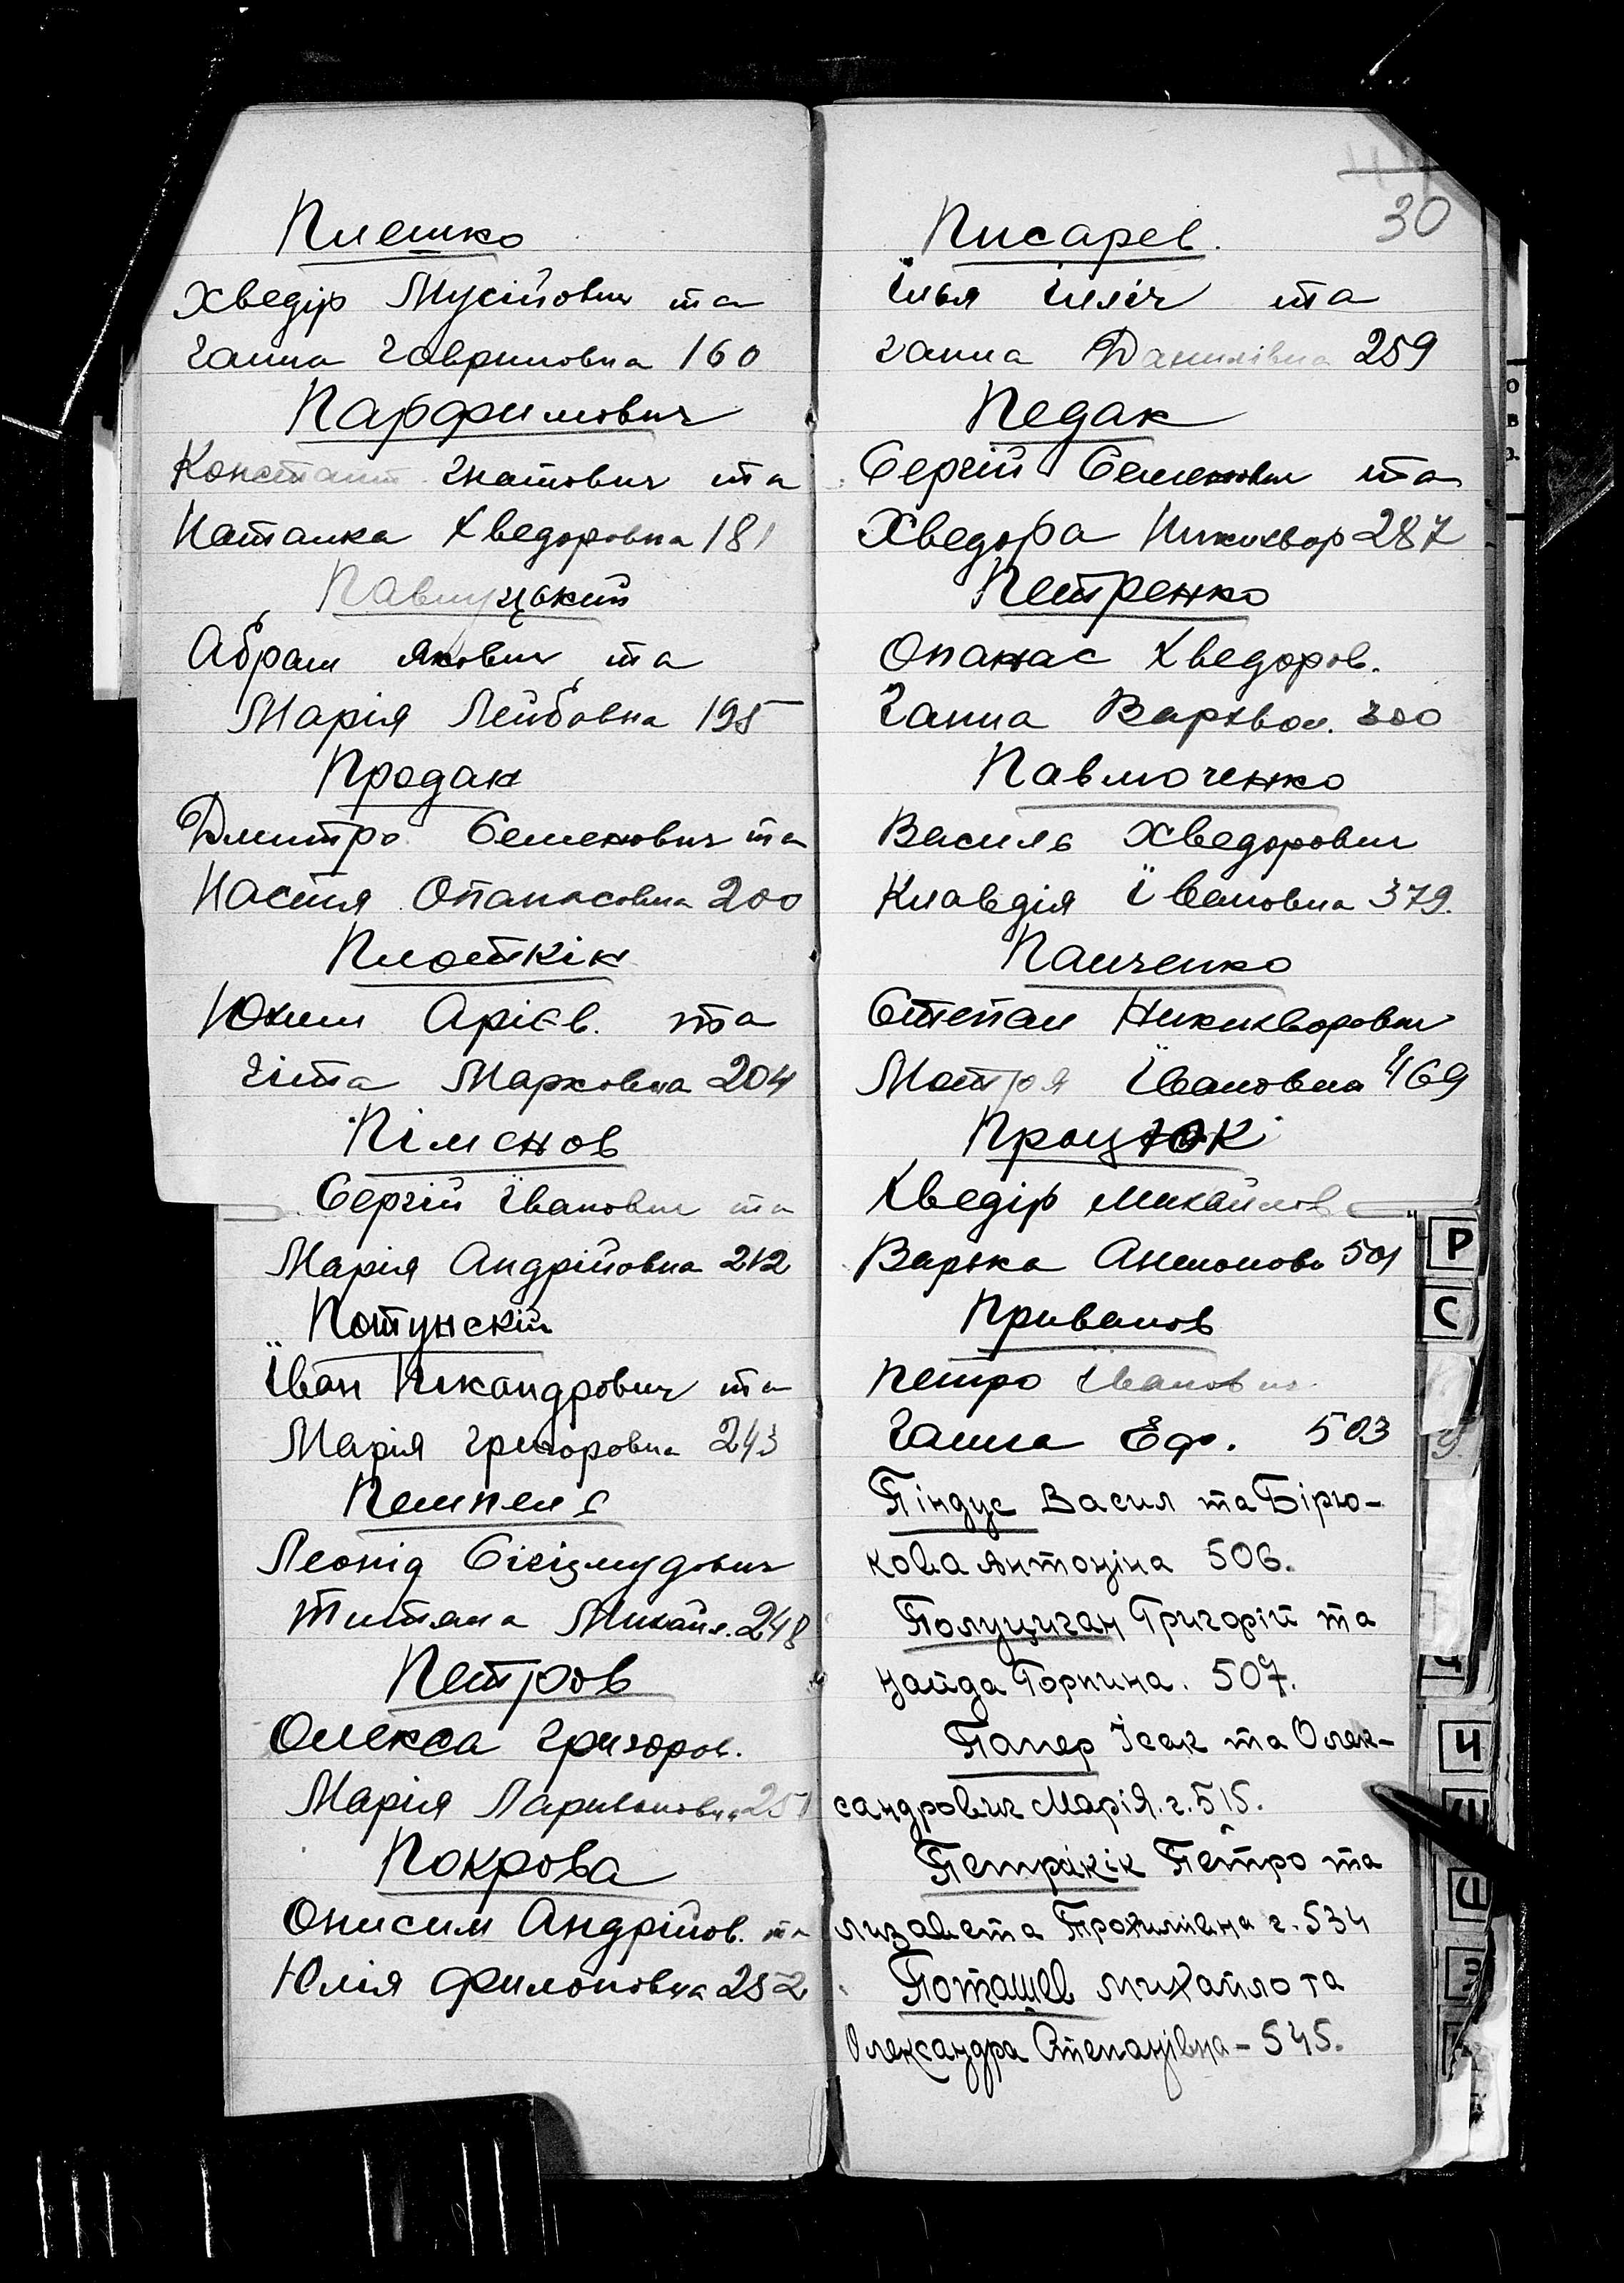 Плешко
Хведір Мусійович та
Ганна Гавриловна 160
Парфимович
Констант Гнатович та
Наталка Хведоровна 181
Павлуцький
Абрам Якович та
Марія Лейбовна 195
Продан
Дмитро Семенович та
Настя Опанасовна 200
Плоткін
Юхим Арієв. та
Гіта Марковна 204
Піменов
Сергій Іванович та
Марія Андрійовна 212
Потунскій
Іван Никандрович та
Марія Григоровна 243
Петпеля
Леонід Сігізмудович
Титяна Михайл. 248
Петров
Олекса Григоров.
Марія Ларивоновна 251
Покрова
Онисим Андрійов. та
Юлія Филоповна 252
30
Писарев.
Ілья Ілліч та
Ганна Данилівна 259
Педак
Сергій Семенович та
Хведора Никихвор 287
Петренко
Опанас Хведоров.
Ганна Вархвол. 300
Павлюченко
Василь Хведорович
Клавдія Івановна 379.
Панченко
Степан Никихворович
Мотря Івановна 469
Процюк
Хведір Михайлов
Варька Антонов 501
Приванов
Петро Іванович
Ганна Єф. 503
Піндус Васил та Бірю-
кова Антоніна 506.
Полуциган Григорій та
Найда Горпина. 507.
Папер Ісак та Олек-
сандрович Марія. г. 515.
Петракік Петро та
Лизавета Трохимівна г. 534
Поташев Михайло та
Олександра Степанівна - 545.
Р
С
Ч
Ш
Щ
Э